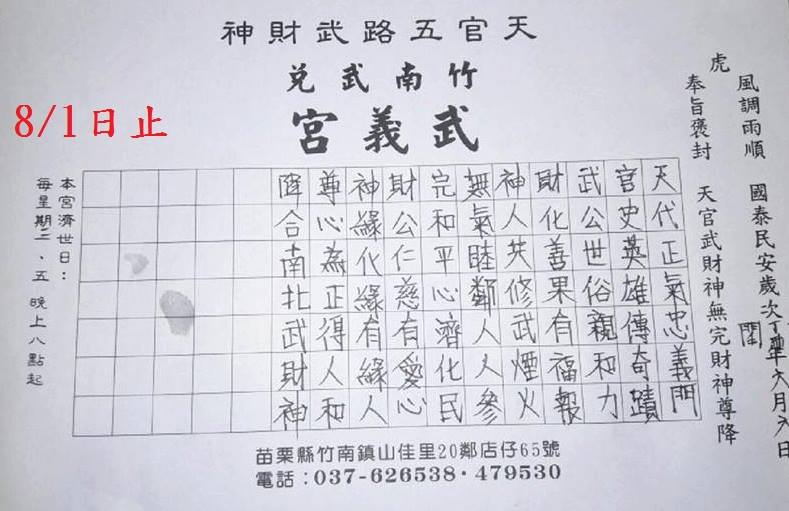 天官五路武財神
竹南武兌
武義宮
8/1日止
風調雨順 國泰民安歲次丁酉年閏六月六日
虎
奉旨褒封 天官武財神無完財神尊降
天代正氣忠義門
官史英雄傳奇蹟
武公世俗親和力
財化善果有福報
神人共修武煙火
無氣睦鄰人人參
完和平心濟化民
財公仁慈有愛心
神緣化緣有緣人
尊心為正得人和
降合南北武財神
本宮濟世日：
每星期二、五 晚上八點起
苗栗縣竹南鎮山佳里20鄰店仔65號
電話：037-626538·479530